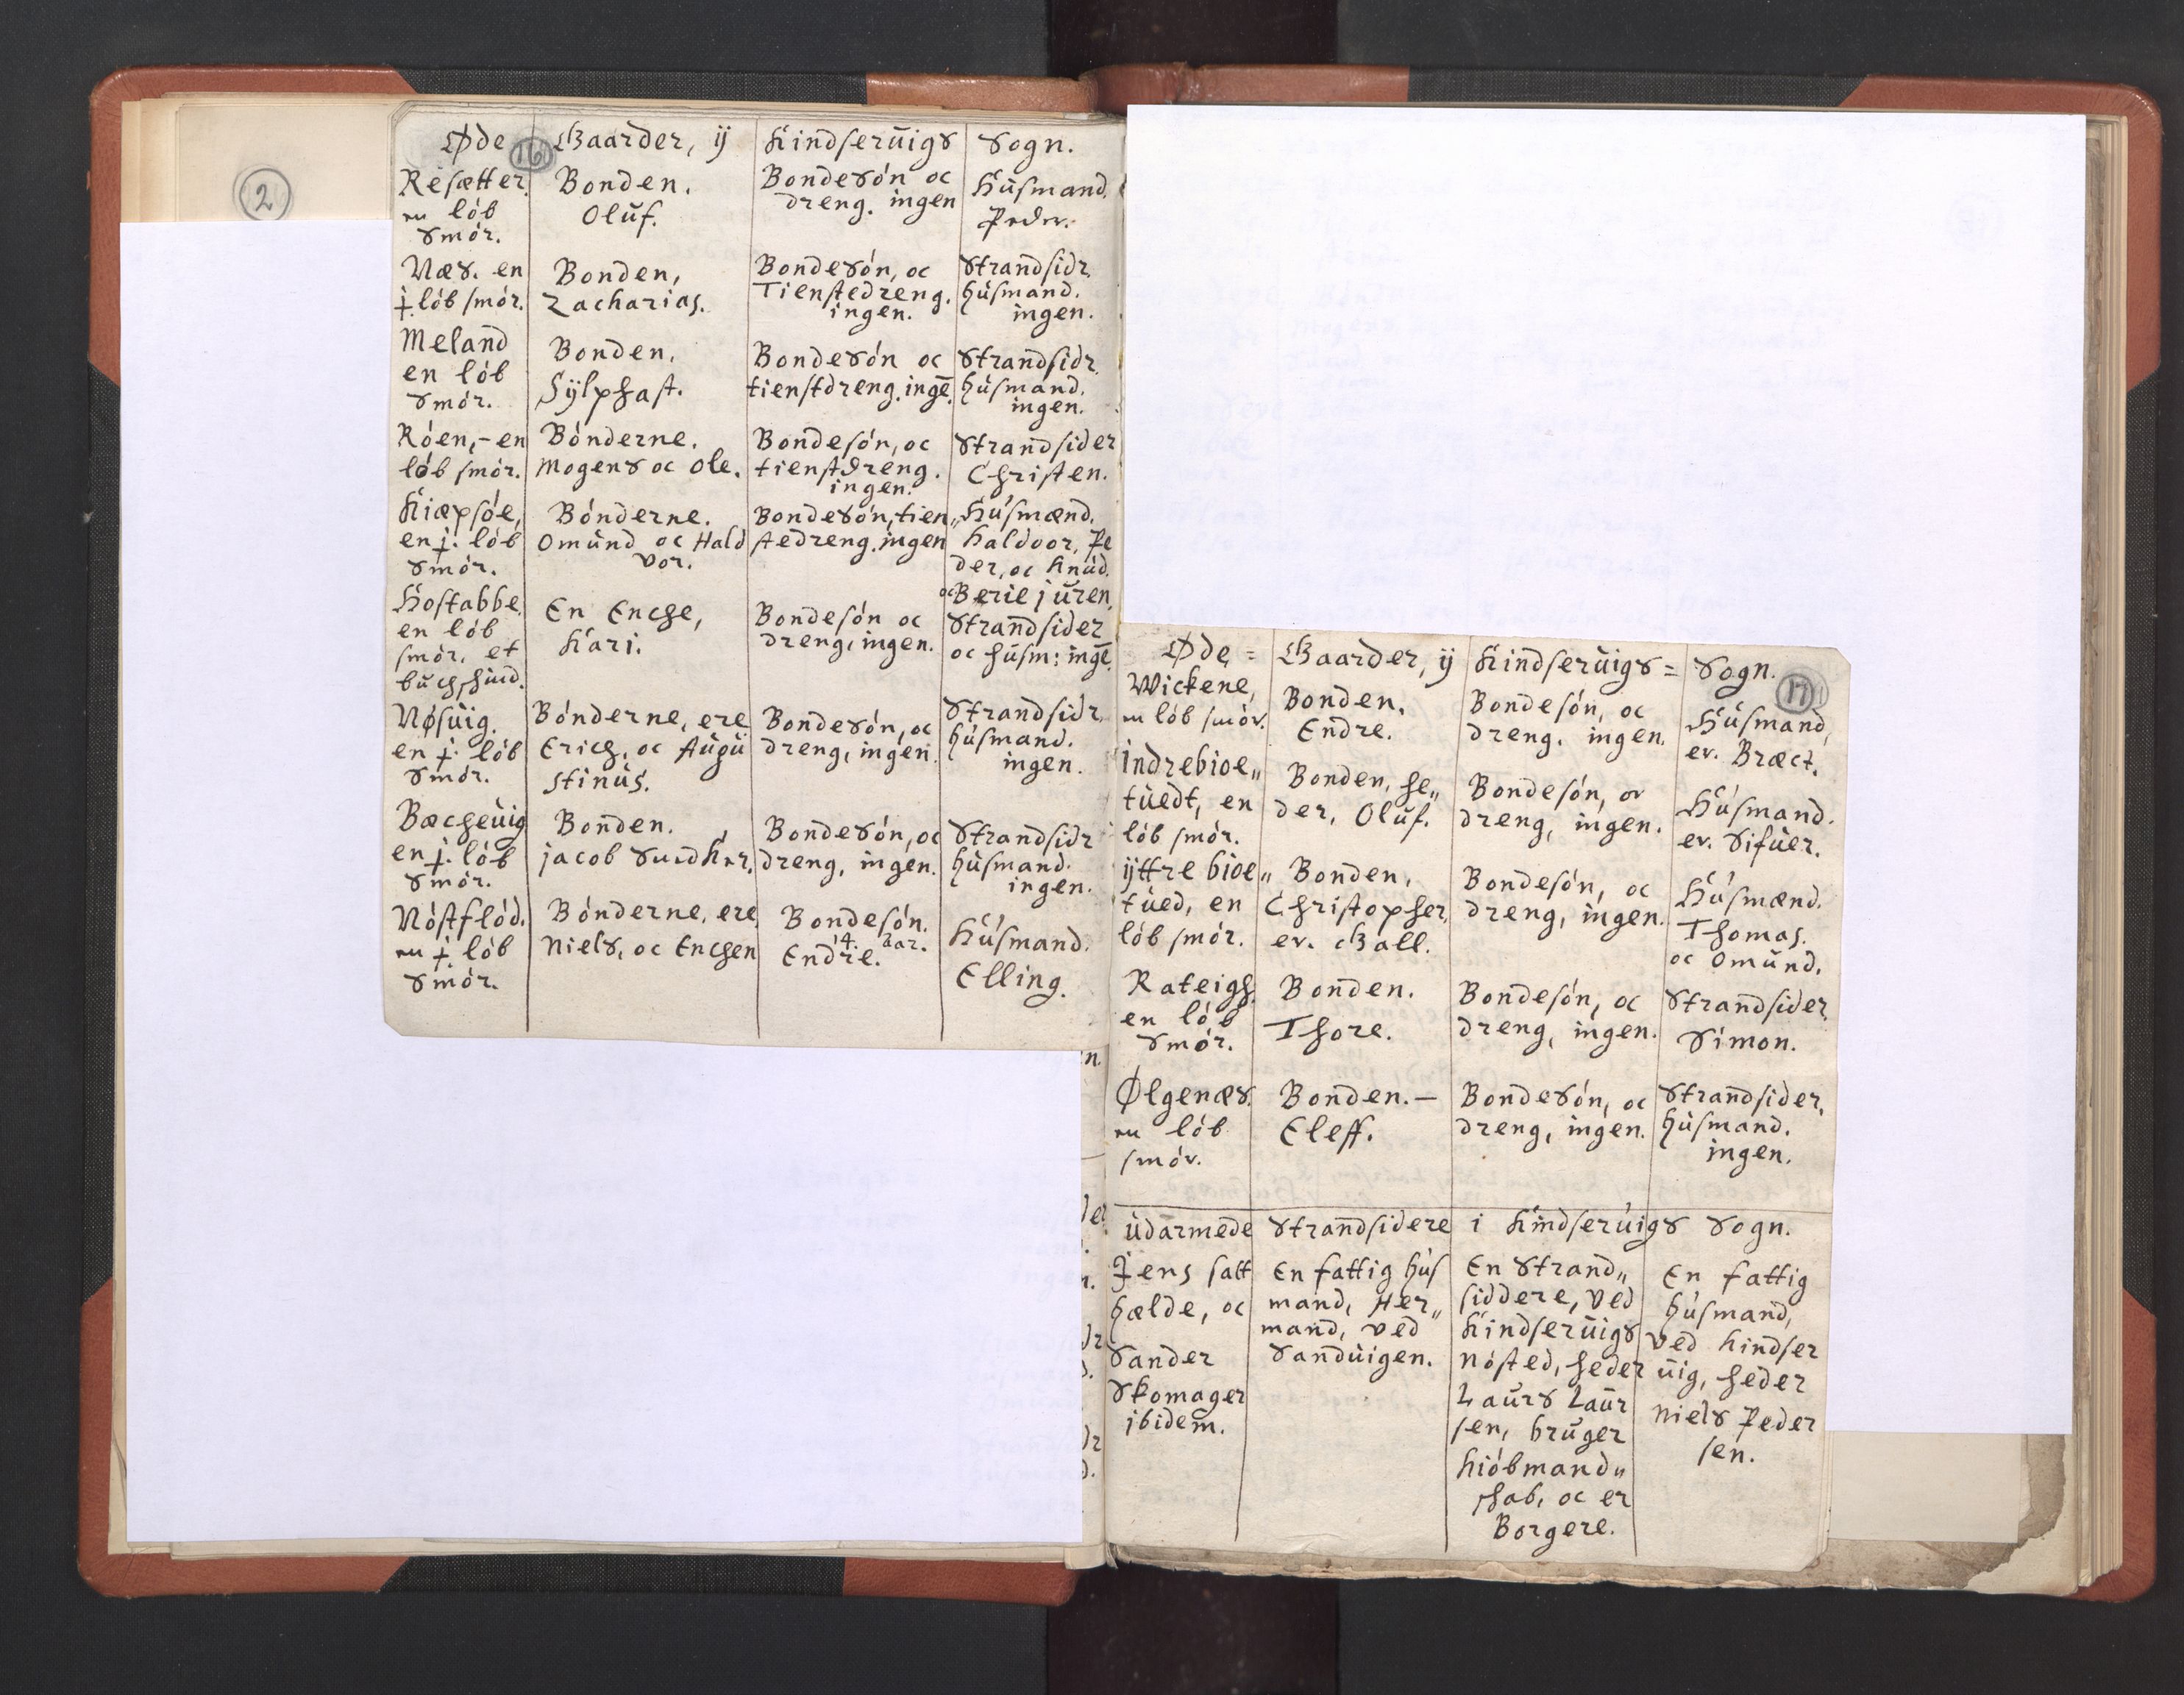 2
16
Øde Gaarder, ij Kindseruigs Sogn.
Resætter.
en løb
Smør.
Bonden.
Oluf.
Bondesøn oc
dreng. ingen
Husmand.
Peder.
Næs. en
j. løb smør.
Bonden,
Zacharias.
Bondesøn, oc
Tienstedreng.
ingen.
Strandsidr.
husmand.
ingen.
Meland
en løb
Smør.
Bonden.
Sylphast.
Bondesøn oc
tienstdreng. ingē.
Strandsidr.
husmand.
ingen.
Røen, - en
løb smør.
Bønderne.
Mogens oc Ole.
Bondesøn, oc
tienstdreng.
ingen.
Strandsider
Christen.
Kiæpsøe,
en j. løb
Smør.
Bønderne.
Omund oc Hald
vor.
Bondesøn, tien„
stedreng. ingen
Husmænd.
Haldoor, Pe
der, oc Knud.
oc Berie juren.
Kostabbe.
en løb
smør. et
buchshud.
En Enche,
Kari.
Bondesøn oc
dreng, ingen.
Strandsider
oc husm: ingē.
Nøsuig.
en j. løb
Smør.
Bønderne, ere
Erich, oc Augu
stinus.
Bondesøn, oc
dreng, ingen.
Strandsidr.
husmand.
ingen.
Bæcheuig
en j. løb
Smør.
Bonden.
jacob
Bondesøn, oc
dreng, ingen.
Strandsidr
husmand.
ingen.
Nøstflød.
en j. løb
Smør.
Bønderne, ere
Niels, oc Enchen
Bondesøn.
14. aar.
Endre.
Husmand.
Elling.
17
Øde = Gaarder, ij Kindseruigs = Sogn.
Wickene,
en løb smør.
Bonden.
Endre.
Bondesøn, oc
dreng. ingen.
Husmand,
er. Bræct.
indrebioe„
tuedt, en
løb smør.
Bonden, he„
der, Oluf.
Bondesøn, oc
dreng, ingen.
Husmand.
er. Sifuer.
ijttre bioe„
tued, en
løb smør.
Bonden,
Christopher.
er. Gall.
Bondesøn, oc
dreng, ingen.
Husmænd.
Thomas.
oc Omund.
Rateigh.
en løb
Smør.
Bonden.
Thore.
Bondesøn, oc
dreng, ingen.
Strandsider
Simon.
Ølgenæs.
en løb
smør.
Bonden. —
Eleff.
Bondesøn, oc
dreng, ingen.
Strandsider,
husmand.
ingen.
udarmede Strandsidere i Kindseruigs Sogn.
Jens satt
hælde, oc
Sander
Skomager
ibidem.
En fattig hus
mand, Her„
mand, ved
Sanduigen.
En Strand„
siddere, ved
Kindseruigs
nøsted, heder
Laurs Laur
sen, bruger
Kiøbmand„
shab, oc er
Borgere.
En fattig
husmand,
ved Kindser
uig, heder
Niels Peder
sen.